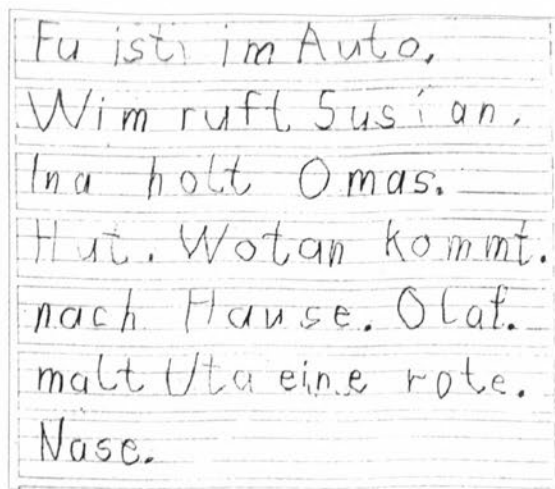 Fu ist im Auto.
Wim ruft Susi an.
Ina holt Omas.
Hut. Wotan kommt.
nach Hause. Olaf.
malt Uta eine rote.
Nase.